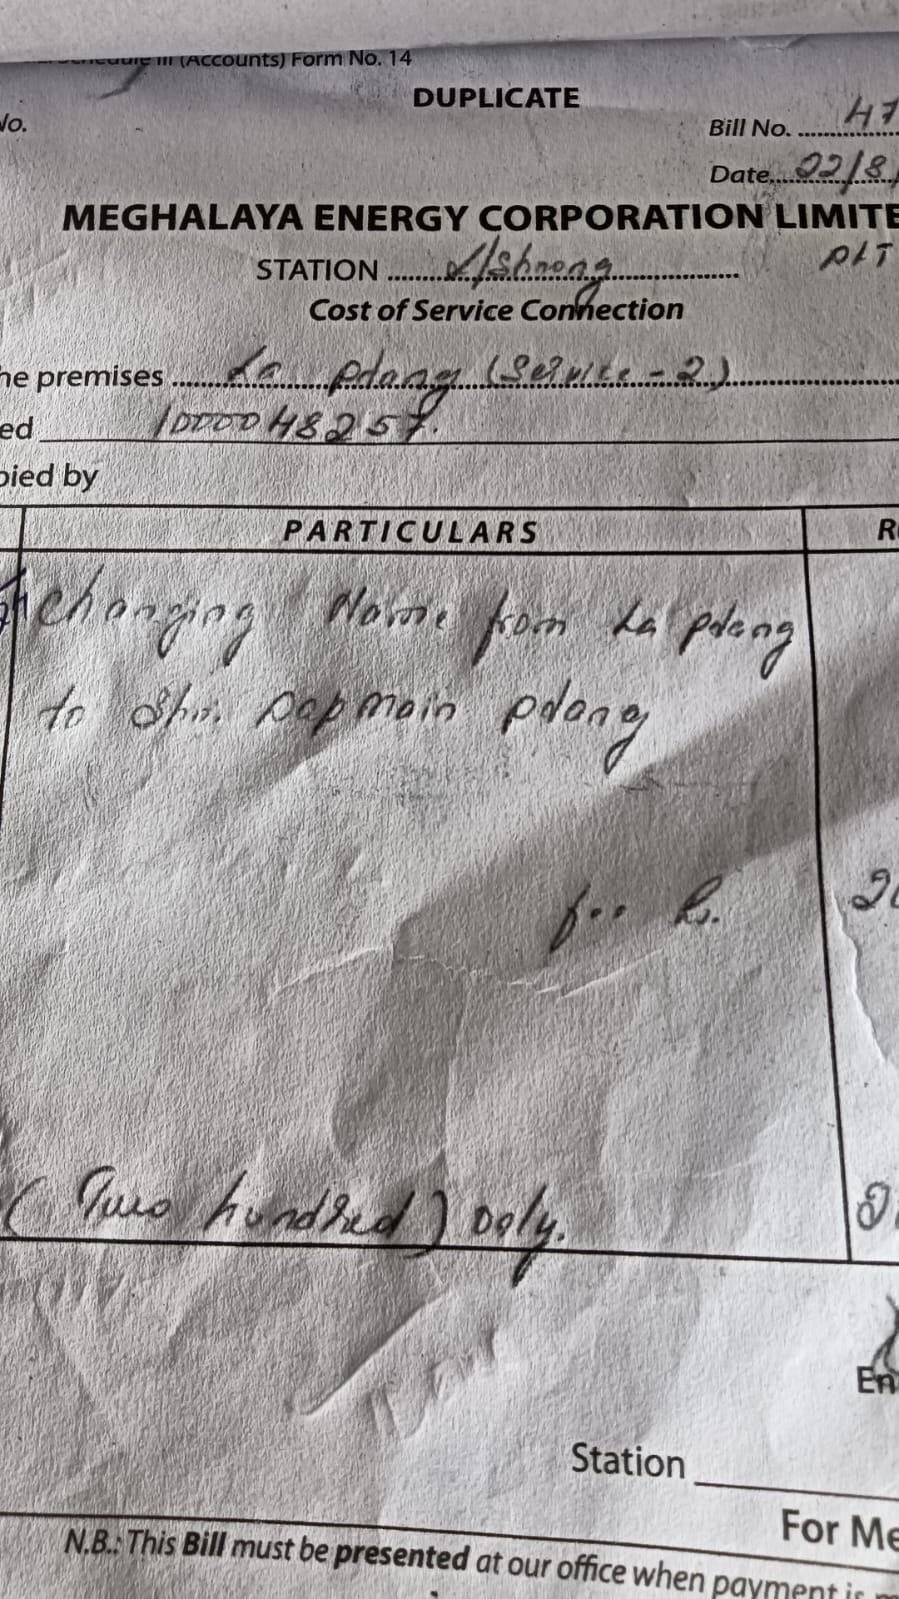 Schedule III (Accounts) Form No. 14
DUPLICATE
No.
Bill No. 47
Date 22/8/
MEGHALAYA ENERGY CORPORATION LIMITE
STATION L/Shnong
Cost of Service Connection
he premises La Pdang (Service - 2)
ed 1000048257.
pied by
PARTICULARS
R
Changing Name from La pdang
to Shri. Dapmain pdang
for Rs. 20
(Two hundred) only.
En
Station
For Me
N.B.: This Bill must be presented at our office when payment is